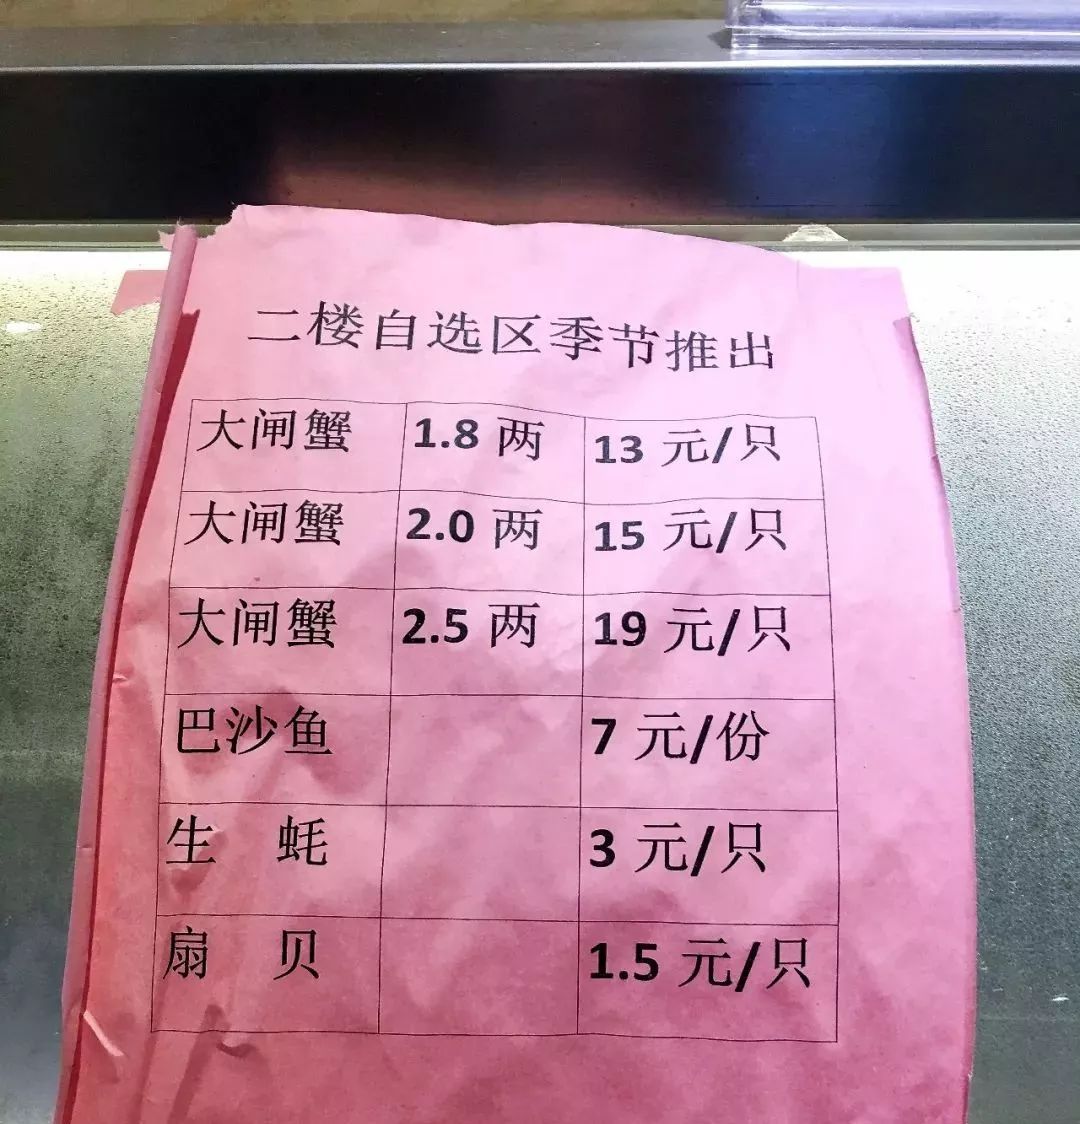 二楼自选区季节推出
大闸蟹 1.8 两 13 元/只
大闸蟹 2.0 两 15 元/只
大闸蟹 2.5 两 19 元/只
巴沙鱼 7 元/份
生 蚝 3 元/只
扇 贝 1.5 元/只